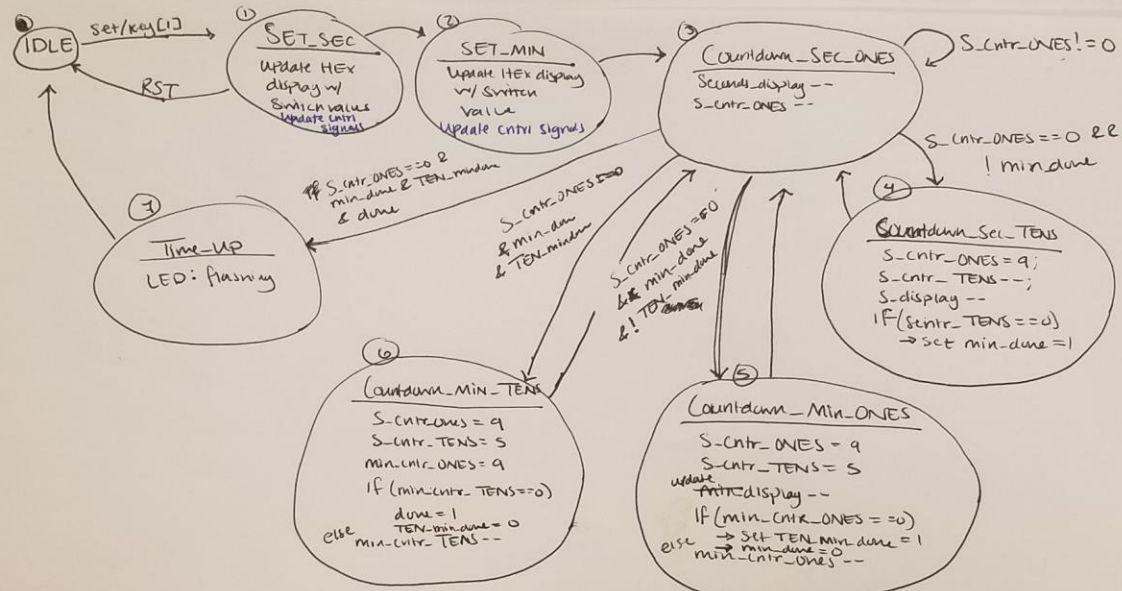 IDLE
set/key[1]
RST
1
SET_SEC
Update HEX
display w/
switch values
Update cntrl
signals
2
SET_MIN
Update HEX display
w/ switch
value
Update cntrl signals
3
Countdown_SEC_ONES
Seconds_display --
S_cntr_ONES --
S_cntr_ONES! = 0
S_cntr_ONES == 0 &&
! min_done
4
Countdown_Sec_TENS
S_cntr_ONES = 9;
S_cntr_TENS --;
S_display --
if(scntr_TENS == 0)
→ set min_done = 1
if S_cntr_ONES == 0 &
min_done & TEN_mindone
& done
S_cntr_ONES == 0
& min_don
& TEN_mindone
S_cntr_ONES == 0
&& min_done
& ! TEN_min_done
7
Time_UP
LED: flashing
6
Countdown_MIN_TENS
S_cntr_ones = 9
S_cntr_TENS = 5
min_cntr_ONES = 9
if (min_cntr_TENS == 0)
done = 1
TEN_min_done = 0
else
min_cntr_TENS --
5
Countdown_Min_ONES
S_cntr_ONES = 9
S_cntr_TENS = 5
update
min display --
if (min_cntr_ONES == 0)
→ set TEN_min_done = 1
→ min_done = 0
else
min_cntr_ones --